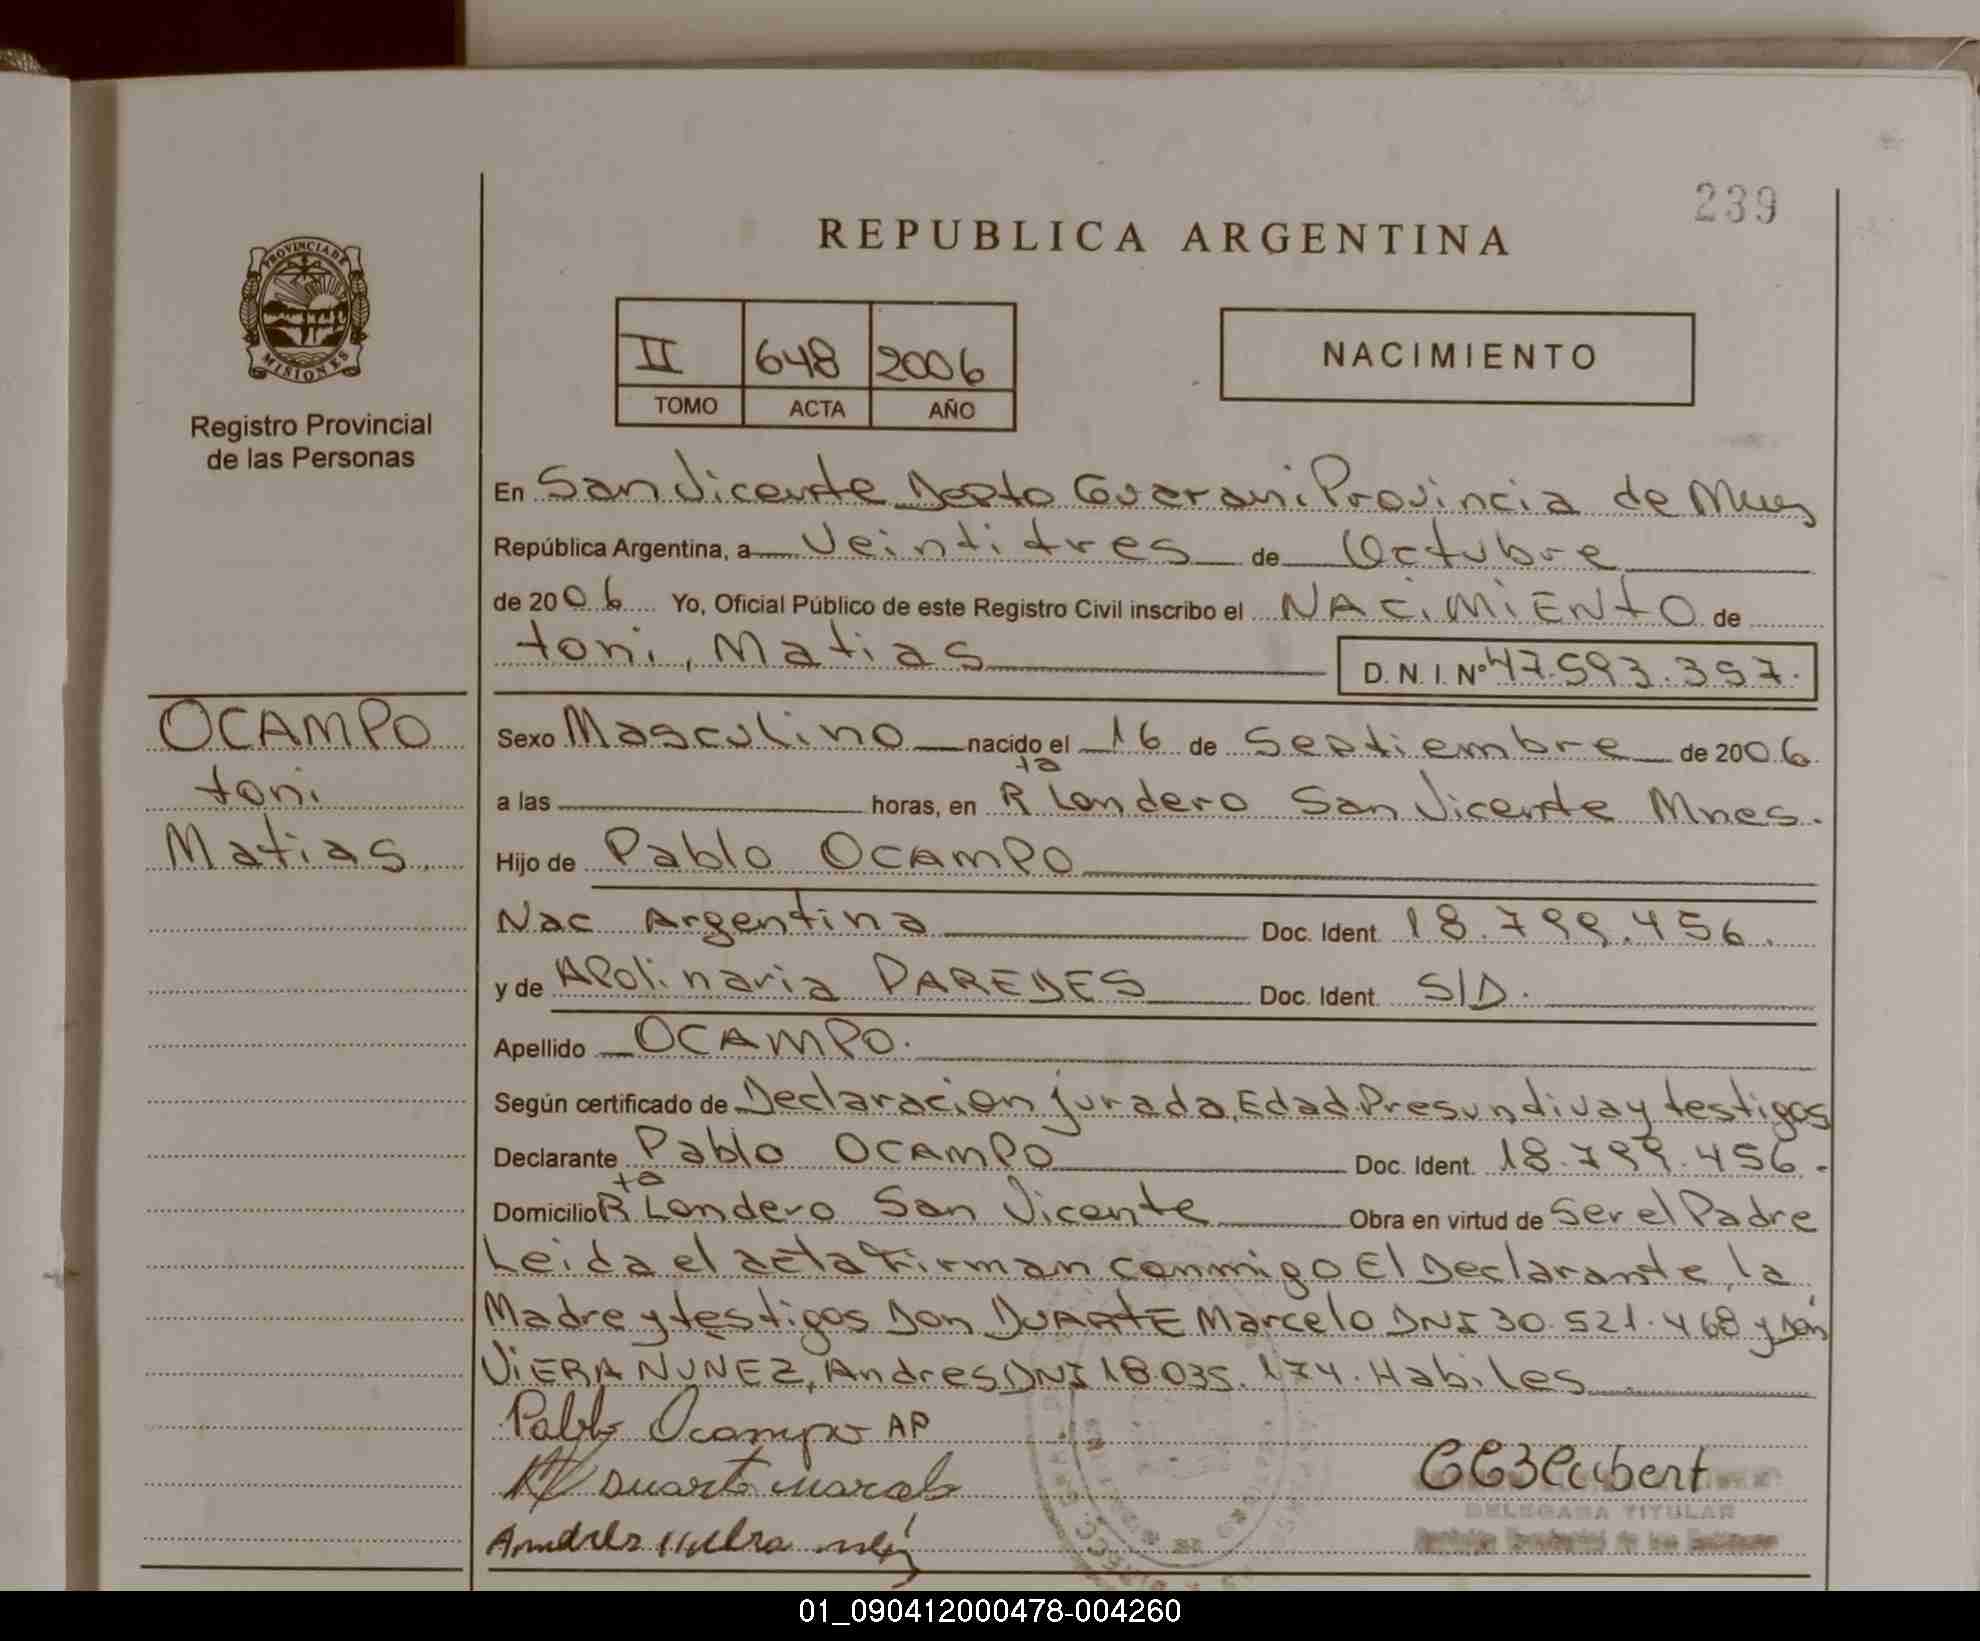 239
REPUBLICA ARGENTINA
PROVINCIA DE
MISIONES
Registro Provincial
de las Personas
II 648 2006
TOMO ACTA AÑO
NACIMIENTO
En San Vicente Depto Guarani Provincia de Mnes
República Argentina, a Veintitres de Octubre
de 2006 Yo, Oficial Público de este Registro Civil inscribo el NACIMIENTO de
toni, Matias D. N. I. Nº 47.593.357.
OCAMPO
toni
Matias
Sexo Masculino nacido el 16 de Septiembre de 2006.
a las horas, en Rta Londero San Vicente Mnes.
Hijo de Pablo OCAMPO
Nac Argentina Doc. Ident. 18.799.456.
y de APolinaria PAREDES Doc. Ident. S/D.
Apellido OCAMPO.
Según certificado de Declaracion jurada, Edad Presundiva y testigos
Declarante Pablo OCAMPO Doc. Ident. 18.799.456.
Domicilio Rta Londero San Vicente Obra en virtud de Ser el Padre
Leida el acta Firman conmigo El Declarante, la
Madre y testigos Don DUARTE Marcelo DNI 30.521.468 y Don
ViERA NUNEZ, Andres DNI 18.035.174. Habiles
Pablo Ocampo AP
Duarte Marcelo
DELEGADA TITULAR
01_090412000478-004260